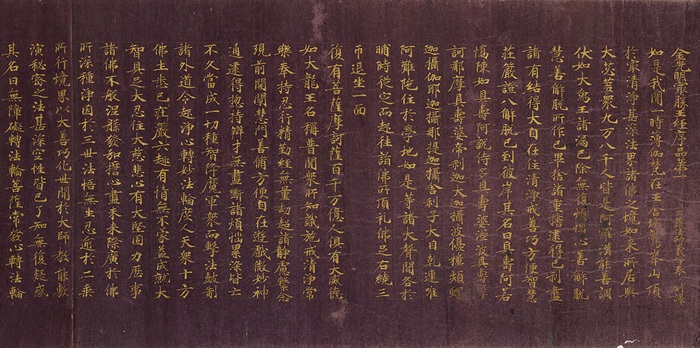 金光明最勝王經序品第一 三藏法師義淨奉 制譯
如是我聞一時薄伽梵在王舍城鷲峯山頂
於最清淨甚深法界諸佛之境如來所居與
大苾芻眾九万八千人皆是阿羅漢能善調
伏如大象王諸漏已除無復煩惱心善解脫
慧善解脫所作已畢捨諸重擔逮得己利盡
諸有結得大自在住清淨戒善巧方便智慧
莊嚴證八解脫已到彼岸其名曰具壽阿若
憍陳如具壽阿說侍多具壽婆溼波具壽摩
訶那摩具壽婆帝利迦大迦攝波優樓頻螺
迦攝伽耶迦攝那提迦攝舍利子大目乾連唯
阿難陀住於學地如是等諸大聲聞各於
晡時從定而起往詣佛所頂禮佛足右繞三
帀退坐一面
復有菩薩摩訶薩百千万億人俱有大威德
如大龍王名稱普聞眾所知識施戒清淨常
樂奉持忍行精勤經無量劫超諸靜慮繫念
現前開闡慧門善修方便自在遊戲微妙神
通逮得總持辯才無盡斷諸煩惱累染皆亡
不久當成一切種智降魔軍眾而擊法鼓制
諸外道令起淨心轉妙法輪度人天眾十方
佛土悉已莊嚴六趣有情無不蒙益成就大
智具足大忍住大慈悲心有大堅固力歷事
諸佛不般涅槃發弘誓心盡未來際廣於佛
所深種淨因於三世法悟無生忍逾於二乘
所行境界以大善巧化世間於大師教能敷
演秘密之法甚深空性皆已了知無復疑惑
其名曰無障礙轉法輪菩薩常發心轉法輪